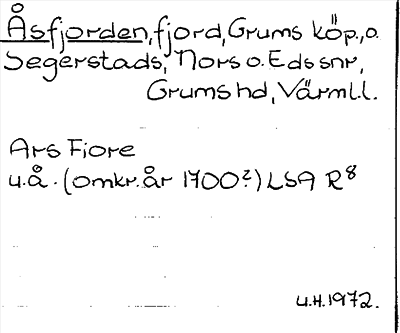 Åsfjorden, fjord, Grums köp., o.
Segerstads, Nors o. Eds snr,
Grums hd, Värml.l.
Ars Fiore
u.å. (omkr. år 1700?) LSA R8
U.H. 1972.